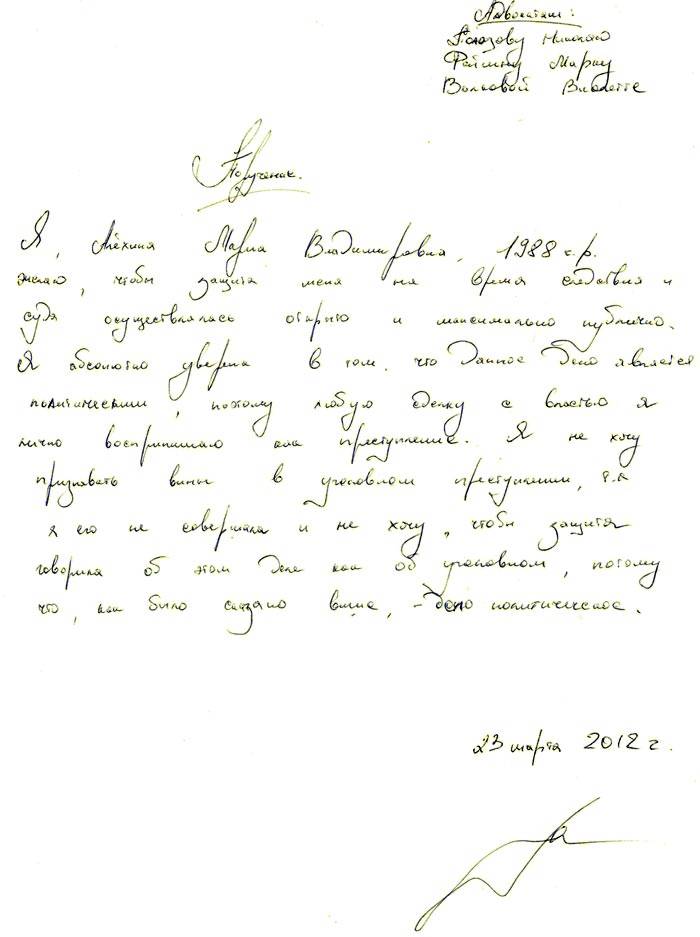 Адвокатам:
Полозову Николаю
Фейгину Марку
Волковой Виолетте
Поручение.
Я, Алёхина Мария Владимировна, 1988 г.р.
желаю, чтобы защита меня на время следствия и
суда осуществлялась открыто и максимально публично.
Я абсолютно уверена в том, что данное дело является
политическим, поэтому любую сделку с властью я
лично воспринимаю как преступление. Я не хочу
признавать вины в уголовном преступлении, т.к
я его не совершала и не хочу, чтобы защита
говорила об этом деле как об уголовном, потому
что, как было сказано выше, - дело политическое.
23 марта 2012 г.